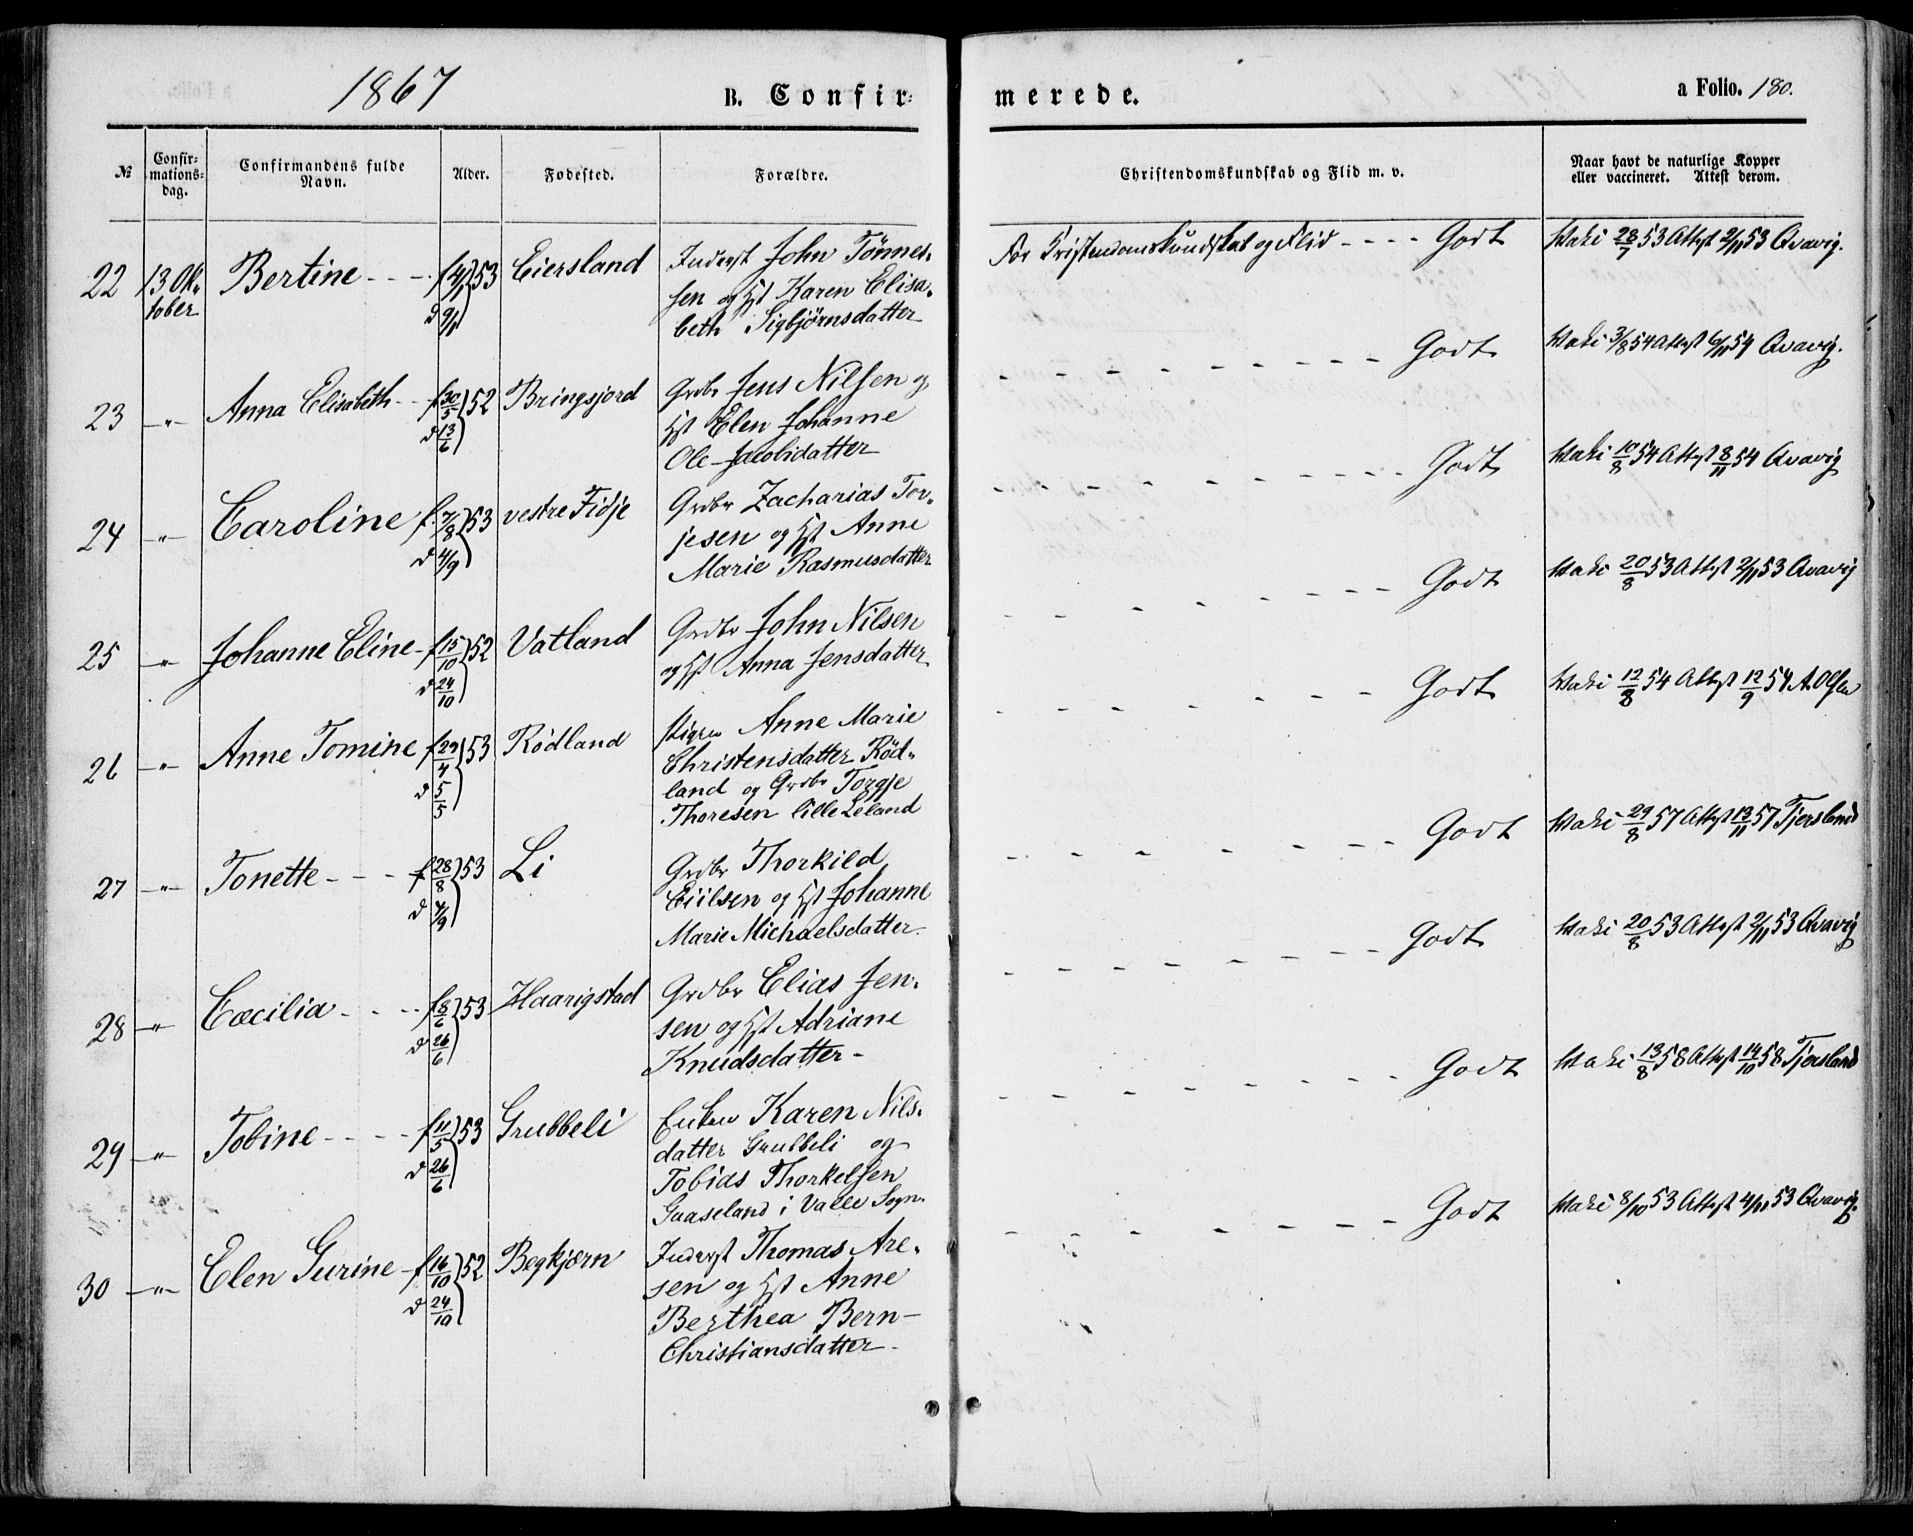 1867
B. Confir-
merede.
a Folio. 180.
№
Confir-
mations-
dag.
Confirmandens fulde
Navn.
Alder.
Fødested.
Forældre.
Christendomskundskab og Flid m. v.
Naar havt de naturlige Kopper
eller vaccineret. Attest derom.
22 13 Ok-
tober
Bertine - - -
f 4/1 53
d 9/1
Eiersland
Inderst John Tönnes-
sen og Hst Karen Elisa-
beth Sigbjørnsdatter
For Kristendomskundskab og Flid - - - - Godt
Vaki 28/7 53 Attest 2/11 53 Qvavig.
23 -"-
Anna Elisabeth - -
f 30/5 52
d 13/6
Bringsjord
Grdbr Jens Nilsen og
Hst Elen Johanne
Ole-Jacobidatter
- - - - - - - - Godt
Vaki 3/8 54 Attest 6/11 54 Qvavig.
24 -"-
Caroline
f 7/8 53
d 4/9
vestre Fidje
Grdbr Zacharias Tor-
jesen og Hst Anne
Marie Rasmusdatter
- - - - - - - - Godt
Vaki 10/8 54 Attest 8/11 54 Qvavig
25 -"-
Johanne Eline -
f 15/10 52
d 24/10
Vatland
Grdbr John Nilsen
og Hst Anna Jensdatter
- - - - - - - - Godt
Vaki 20/8 53 Attest 2/11 53 Qvavig
26 -"-
Anne Tomine
f 29/4 53
d 5/5
Rødland
Pigen Anne Marie
Christensdatter Rød-
land og Grdbr Torgje
Thoresen lille Leland
- - - - - - - Godt
Vaki 12/8 54 Attest 12/9 54 A. Olsen
27 -"-
Tonette - - - -
f 28/8 53
d 4/9
Li
Grdbr Thorkild
Eiilsen og Hst Johanne
Marie Michaelsdatter.
- - - - - - - - Godt
Vaki 29/8 57 Attest 13/11 57 Tjersland
28 -"-
Cæcilia - - - -
f 8/6 53
d 26/6
Haarigstad
Grdbr Elias Jen-
sen og Hst Adriane
Knudsdatter -
- - - - - - - - Godt
Vaki 20/8 53 Attest 2/11 53 Qvavig
29 -"-
Tobine - - - -
f 11/5 53
d 26/6
Grubbeli
Enken Karen Nils-
datter Grubbeli og
Tobias Thorkelsen
Gaaseland i Valle Sogn.
- - - - - - - - Godt
Vaki 13/8 58 Attest 14/10 58 Tjersland
30 -"-
Elen Gurine -
f 16/10 52
d 24/10
Begkjærn
Inderst Thomas Are-
sen og Hst Anne
Berthea Bern-
Christiansdatter -
- - - - - - - - Godt
Vaki 8/10 53 Attest 4/11 53 Qvavig.